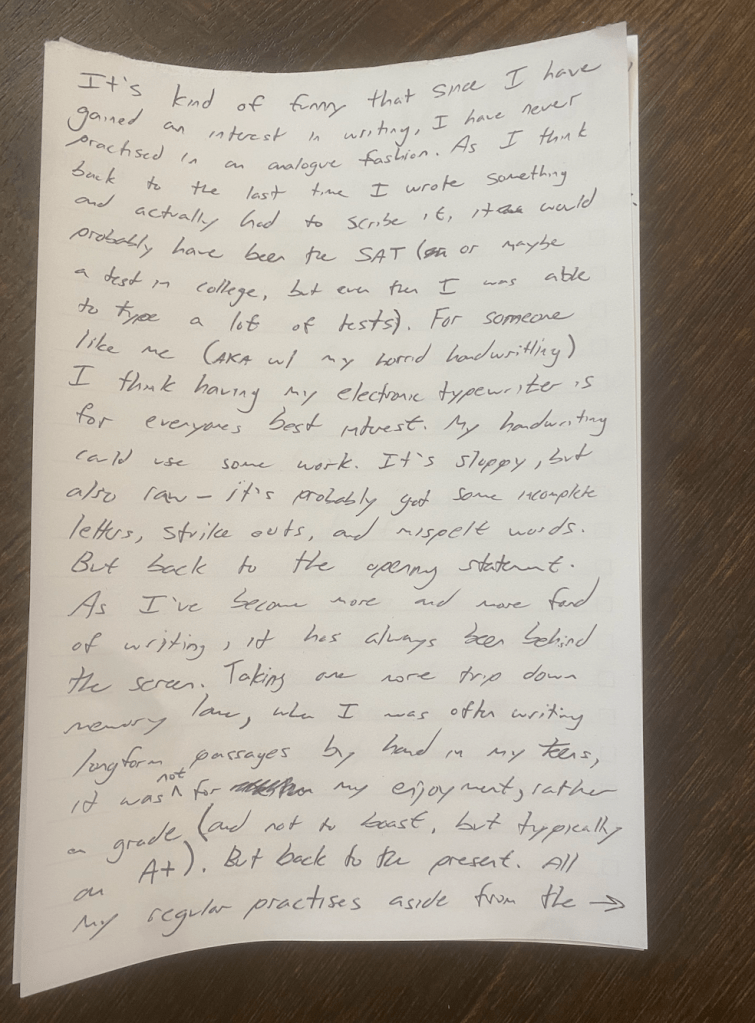 It's kind of funny that since I have
gained an interest in writing, I have never
practised in an analogue fashion. As I think
back to the last time I wrote something
and actually had to scribe it, it would
probably have been the SAT (or maybe
a test in college, but even then I was able
to type a lot of tests). For someone
like me (AKA w/ my horrid handwritting)
I think having my electronic typewriter is
for everyones best interest. My handwriting
could use some work. It's sloppy, but
also raw – it's probably got some incomplete
letters, strike outs, and mispelt words.
But back to the opening statement.
As I've become more and more fond
of writing, it has always been behind
the screen. Taking one more trip down
memory lane, when I was often writing
longform passages by hand in my teens,
it was not for my enjoyment, rather
a grade (and not to boast, but typically
an A+). But back to the present. All
my regular practises aside from the →